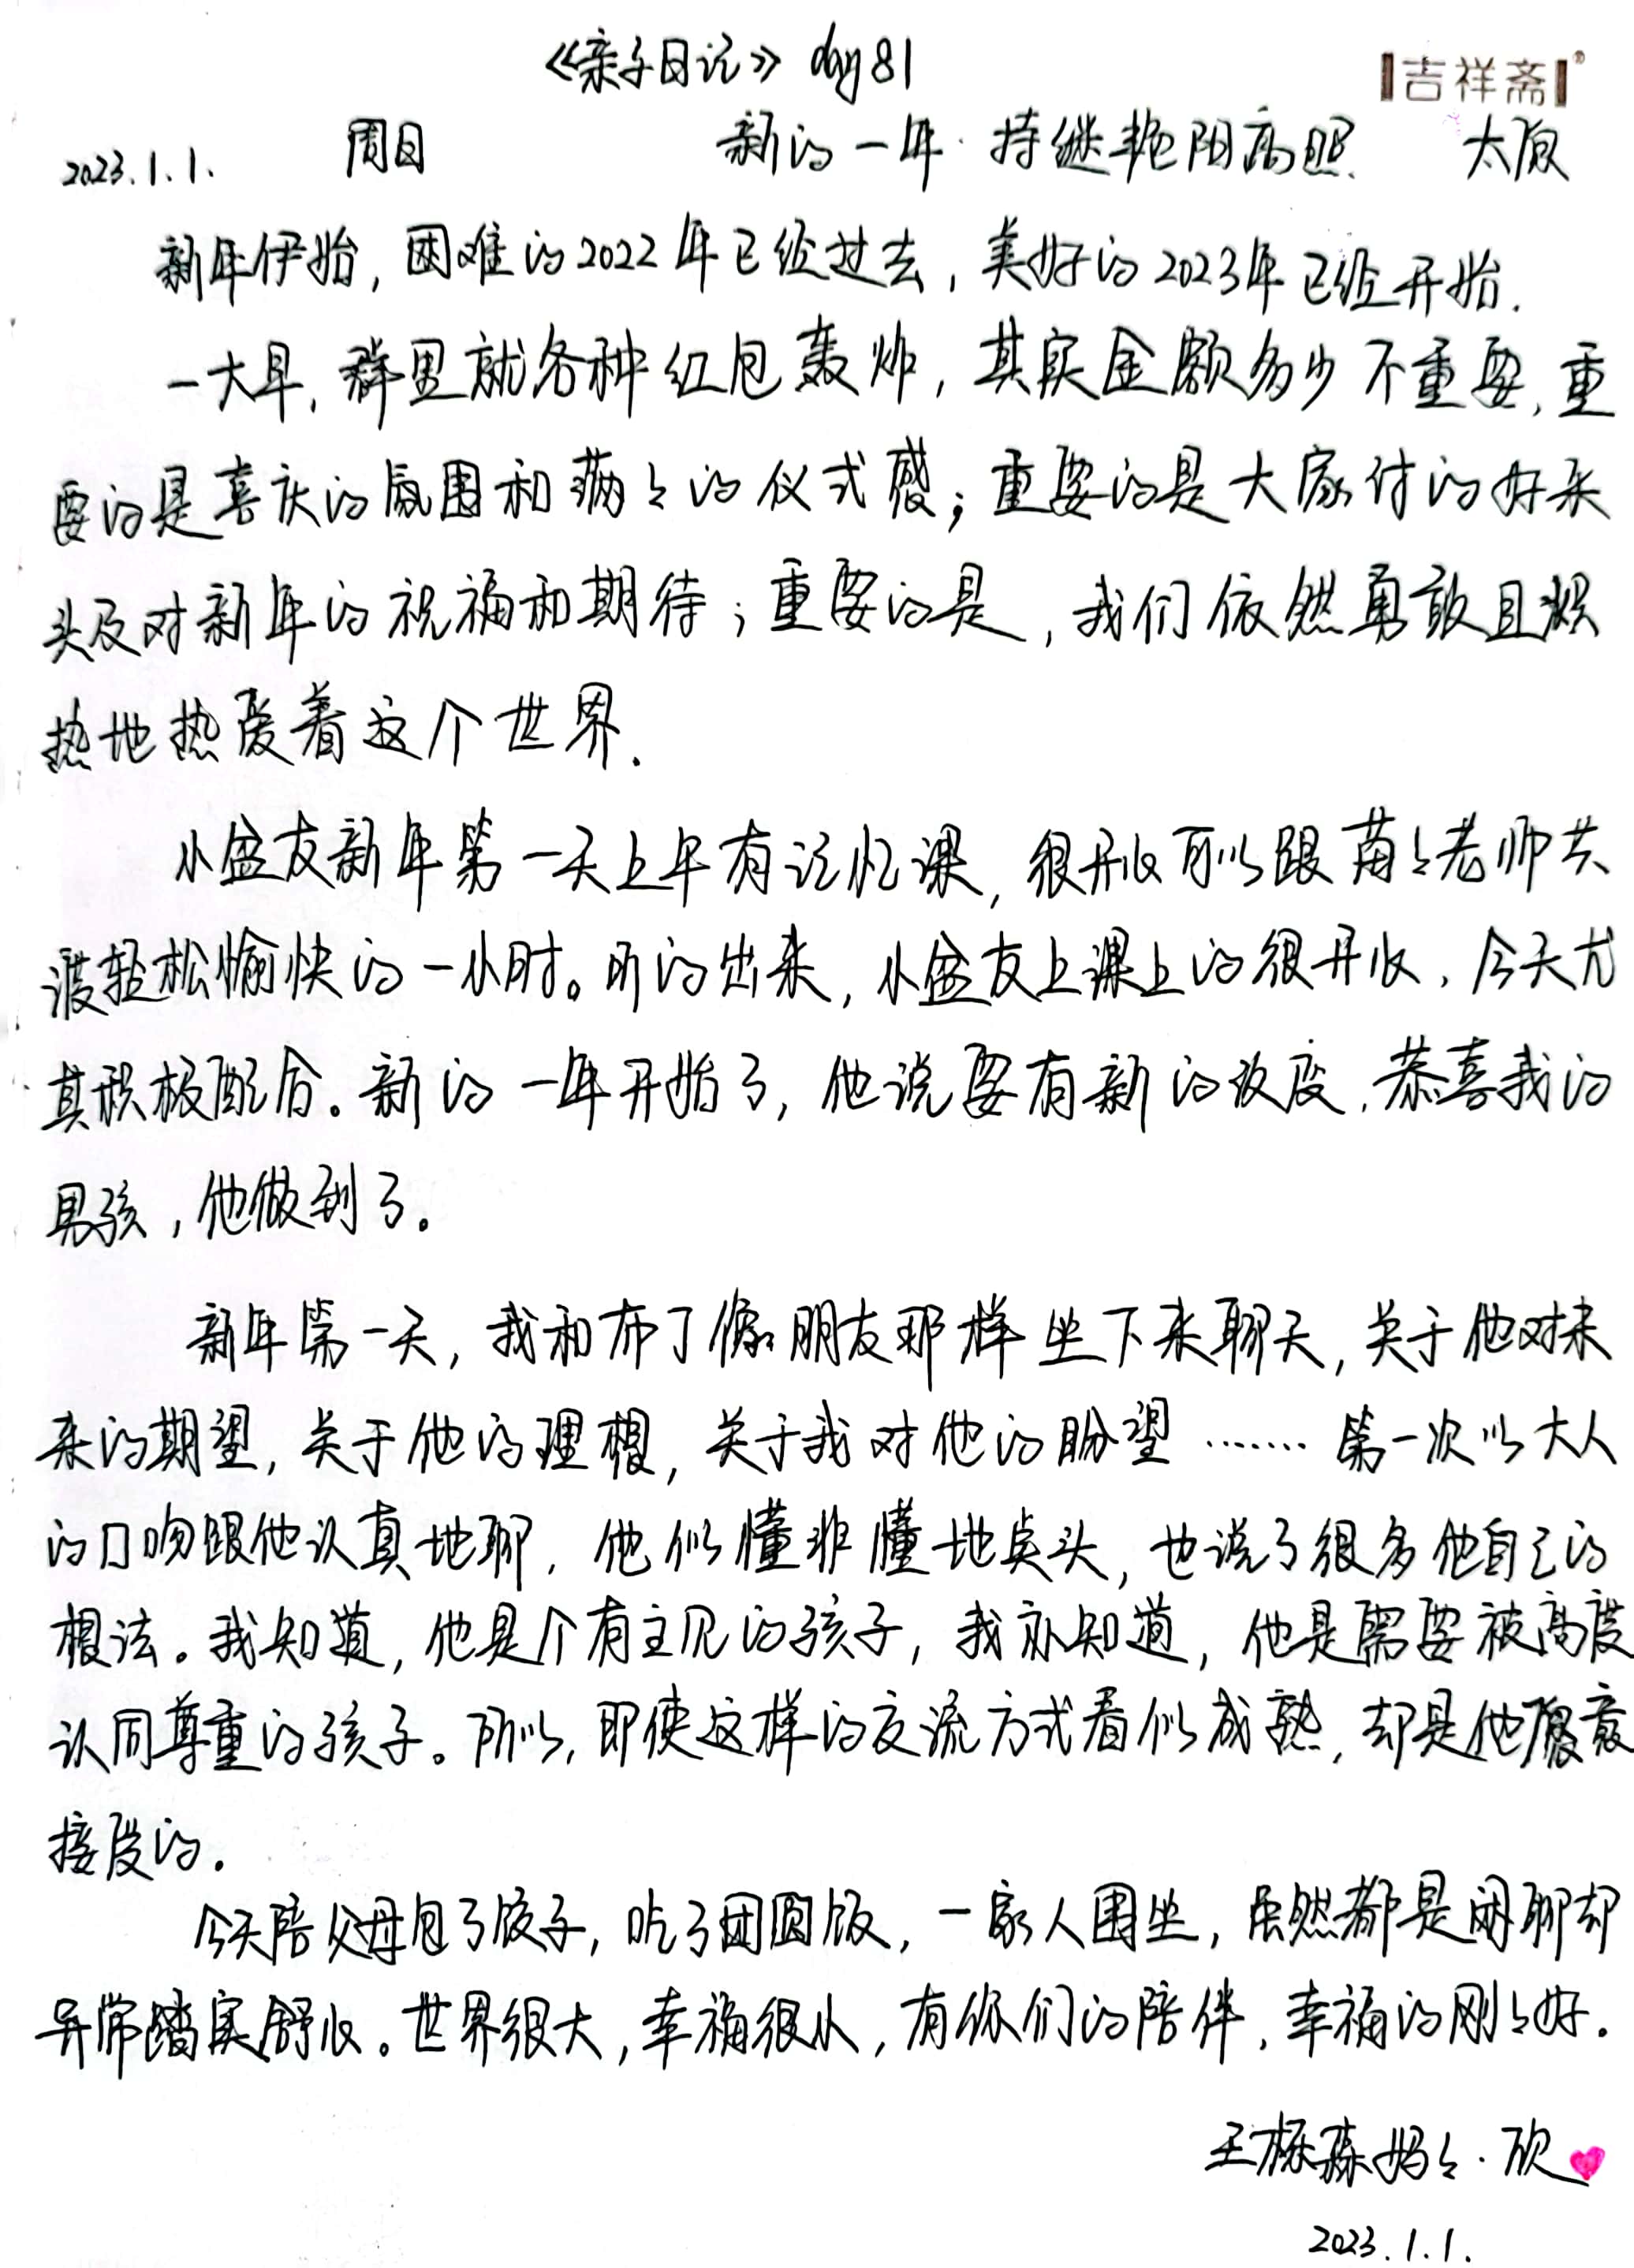 《亲子日记》 day 81
吉祥斋®
2023.1.1. 周日 新的一年·持继艳阳高照. 太原
新年伊始,困难的2022年已经过去,美好的2023年已经开始.
一大早,群里就各种红包轰炸,其实金额多少不重要,重
要的是喜庆的氛围和满々的仪式感;重要的是大家付的好采
头及对新年的祝福和期待;重要的是,我们依然勇敢且炽
热地热爱着这个世界.
小盆友新年第一天上午有记忆课,很开心可以跟苗々老师共
渡轻松愉快的一小时。听的出来,小盆友上课上的很开心,今天尤
其积极配合。新的一年开始了,他说要有新的改变,恭喜我的
男孩,他做到了。
新年第一天,我和布丁像朋友那样坐下来聊天,关于他对未
来的期望,关于他的理想,关于我对他的盼望……第一次以大人
的口吻跟他认真地聊,他似懂非懂地点头,也说了很多他自己的
想法。我知道,他是个有主见的孩子,我亦知道,他是需要被高度
认同尊重的孩子。所以,即使这样的交流方式看似成熟,却是他愿意
接受的.
今天陪父母包了饺子,吃了团圆饭,一家人围坐,虽然都是闲聊却
异常踏实舒心。世界很大,幸福很小,有你们的陪伴,幸福的刚々好.
王栎森妈々·欣
2023.1.1.